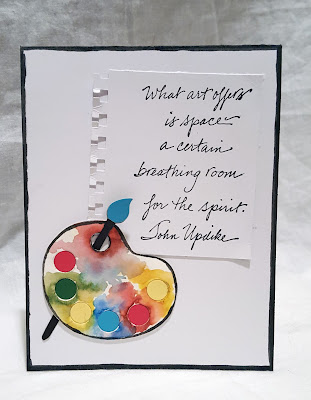 What art offers
is space
a certain
breathing room
for the spirit.
John Updike